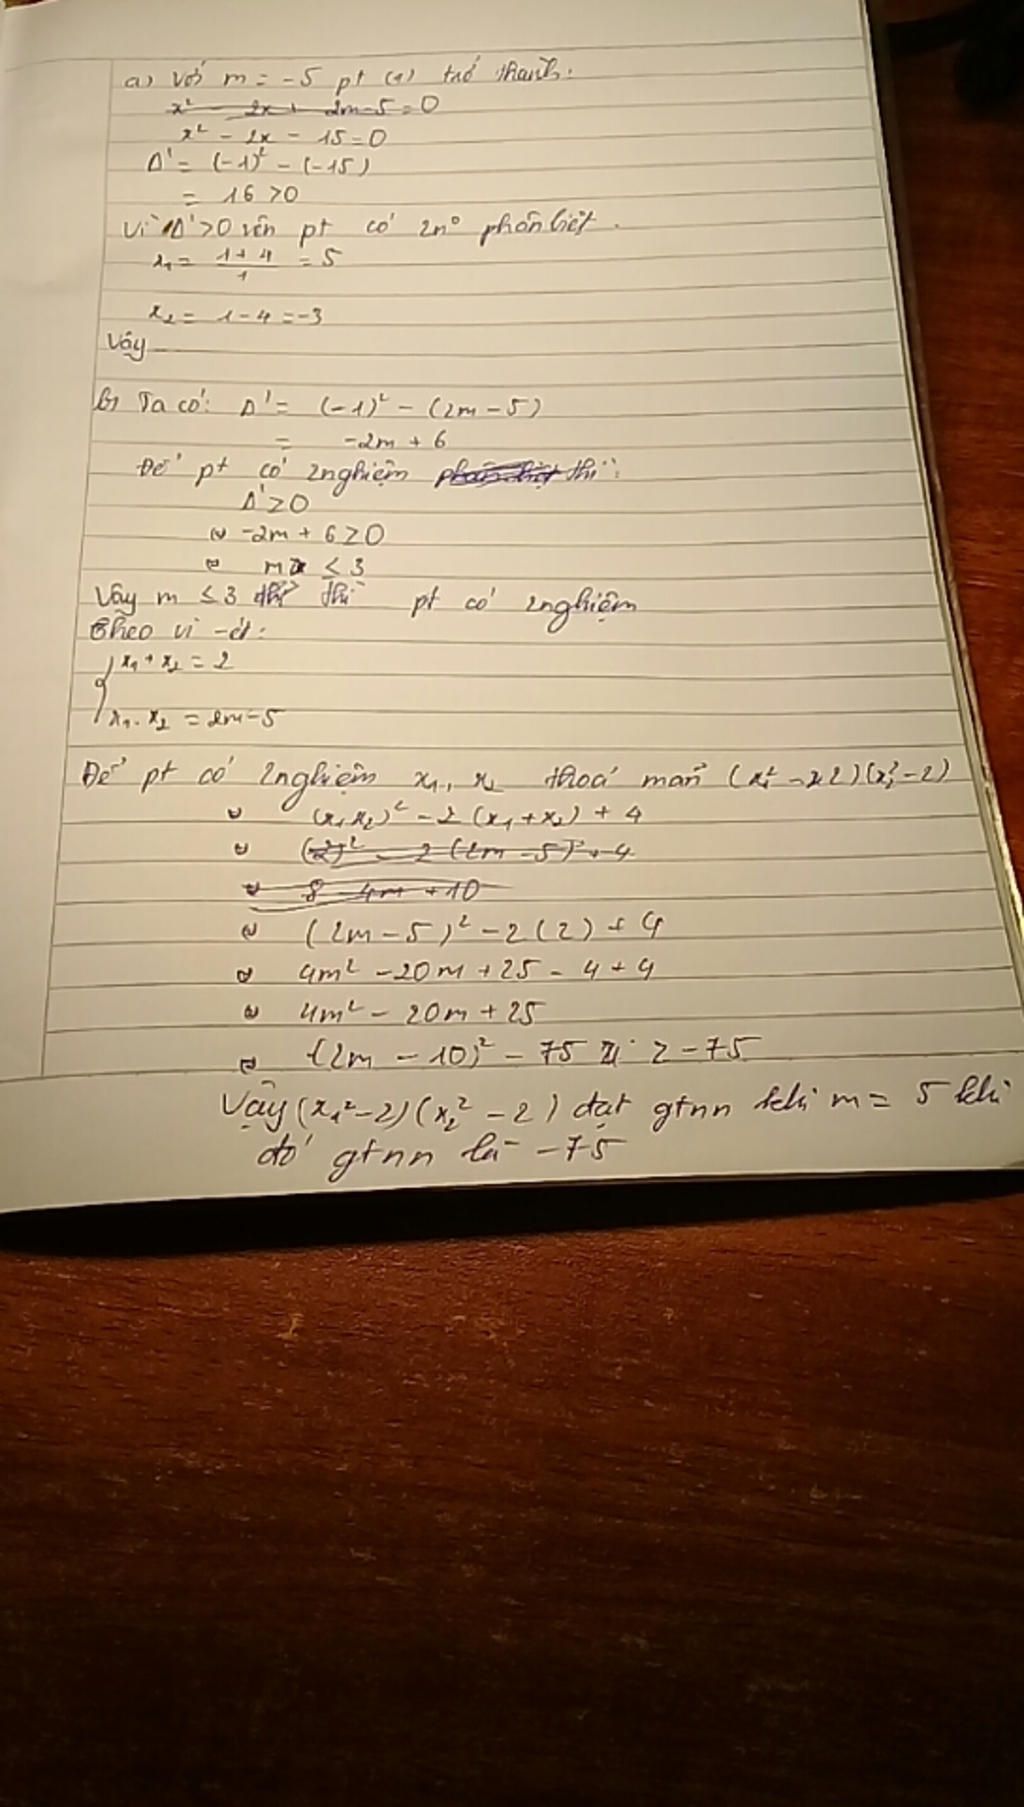 a) Với m = -5 pt (1) trở thành:
x² - 2x + 2m-5 = 0
x² - 2x - 15 = 0
Δ' = (-1)² - (-15)
= 16 > 0
Vì Δ' > 0 nên pt có 2n⁰ phân biệt.
x₁ = (1+4)/1 = 5
x₂ = 1-4 = -3
Vậy
b) Ta có: Δ' = (-1)² - (2m - 5)
= -2m + 6
Để pt có 2 nghiệm phân biệt thì:
Δ' ≥ 0
⇔ -2m + 6 ≥ 0
⇔ m ≤ 3
Vậy m ≤ 3 thì pt có 2 nghiệm
Theo vi-ét:
{ x₁ + x₂ = 2
x₁.x₂ = 2m-5
Để pt có 2 nghiệm x₁, x₂ thoả mãn (x₁² - 2)(x₂² - 2)
⇔ (x₁x₂)² - 2(x₁+x₂) + 4
⇔ (2)² - 2(2m-5) + 4
⇔ 8 - 4m + 10
⇔ (2m - 5)² - 2(2) + 4
⇔ 4m² - 20m + 25 - 4 + 4
⇔ 4m² - 20m + 25
⇔ (2m - 10)² - 75 ≥ -75
Vậy (x₁²-2)(x₂²-2) đạt gtnn khi m = 5 khi
đó gtnn là -75